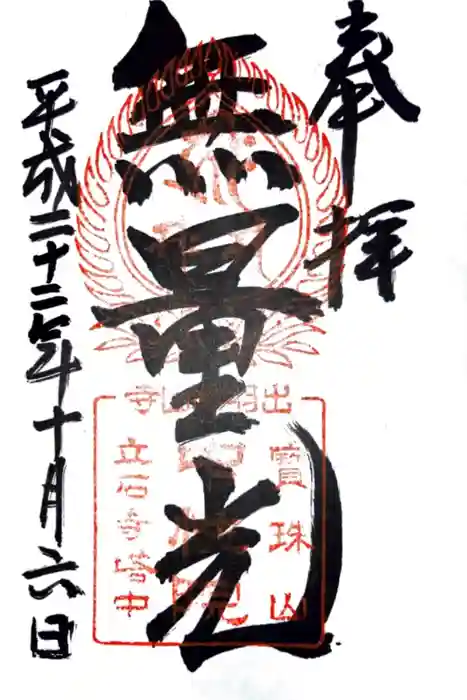 奉拝
無量光
平成二十二年十月六日
出羽山寺
寳珠山
立石寺塔中